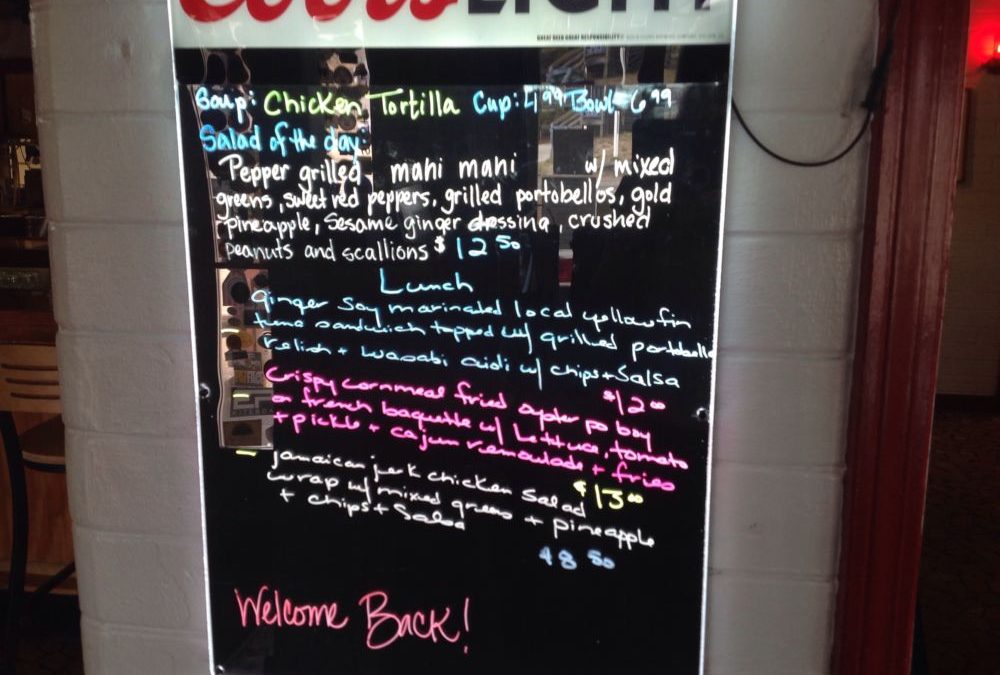 Coors LIGHT
GREAT BEER GREAT RESPONSIBILITY
Soup: Chicken Tortilla Cup: 4.99 Bowl 6.99
Salad of the day:
Pepper grilled mahi mahi w/ mixed
greens, sweet red peppers, grilled portobellos, gold
pineapple, Sesame ginger dressing, crushed
peanuts and scallions $12.50
Lunch
ginger soy marinated local yellowfin
tuna sandwich topped w/ grilled portobello
relish + wasabi aioli w/ chips + Salsa
$12.00
Crispy cornmeal fried oyster po boy
on french baguette w/ Lettuce, tomato
+ pickle + cajun remoulade + fries
$13.00
jamaican jerk chicken salad
wrap w/ mixed greens + pineapple
+ chips + Salsa
$8.50
Welcome Back!